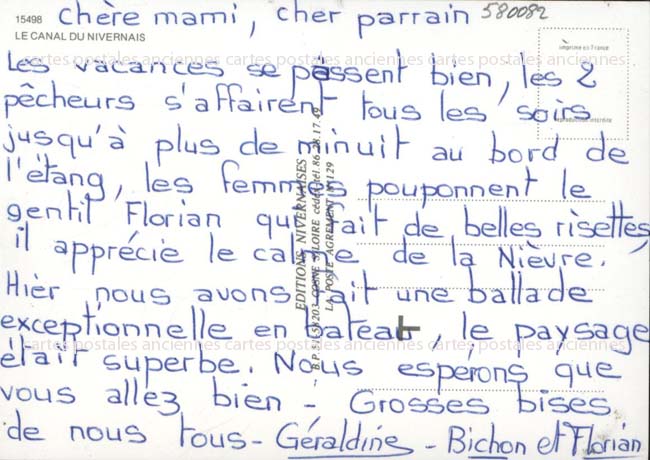 chère mami, cher parrain
580082
15498
LE CANAL DU NIVERNAIS
imprimé en France
reproduction interdite
cartes postales anciennes cartes postales anciennes cartes postales anciennes
Les vacances se passent bien, les 2
pêcheurs s'affairent tous les soirs
jusqu'à plus de minuit au bord de
l'étang, les femmes pouponnent le
gentil Florian qui fait de belles risettes,
il apprécie le calme de la Nièvre.
Hier nous avons fait une ballade
exceptionnelle en bateau, le paysage
était superbe. Nous espérons que
vous allez bien - Grosses bises
de nous tous - Géraldine - Bichon et Florian
EDITIONS NIVERNAISES
cartes postales anciennes cartes postales anciennes cartes postales anciennes